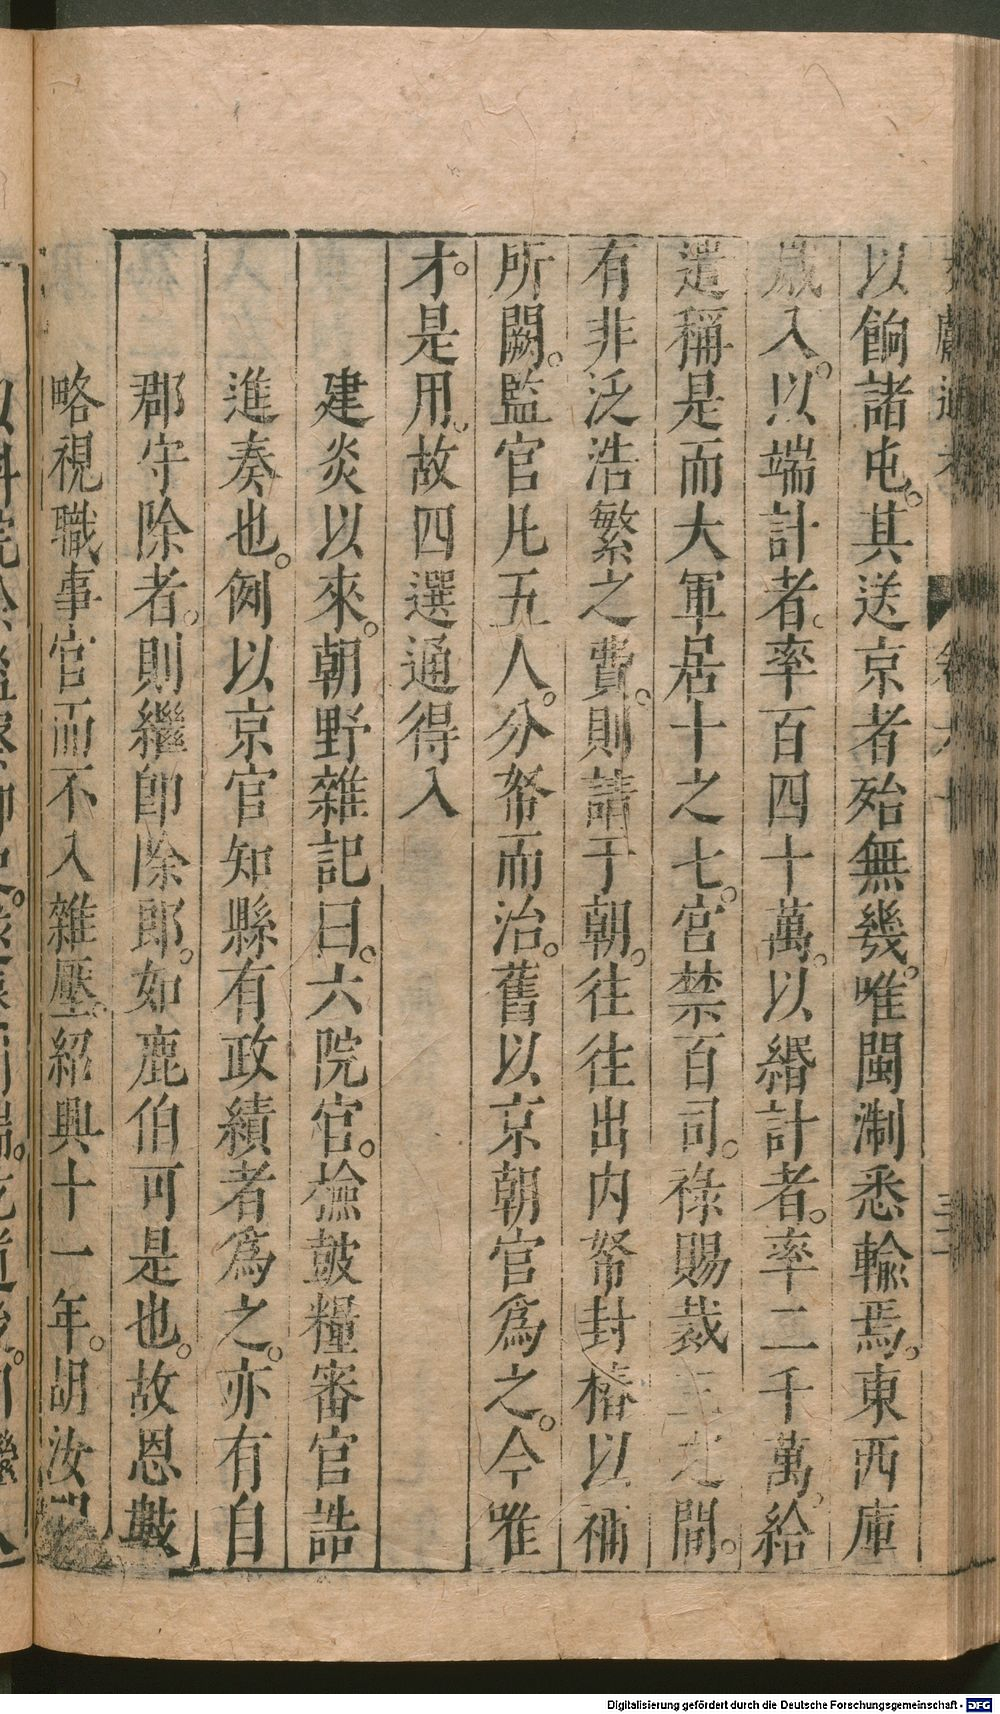 以餉諸屯。其送京者殆無幾。唯閩淛悉輸焉。東西庫
歲入。以端計者。率百四十萬。以緡計者。率二千萬。給
遣稱是而大軍居十之七。宮禁百司。祿賜裁三之間。
有非泛浩繁之費。則請于朝。往往出内帑封樁以補
所闕。監官凡五人。分帑而治。舊以京朝官爲之。今唯
才。是用。故四選通得入
建炎以來。朝野雜記曰。六院官。撿鼓糧審官誥
進奏也。例以京官知縣有政績者爲之。亦有自
郡守除者。則繼卽除郎。如鹿伯可是也。故恩數
略視職事官而不入雜壓。紹興十一年。胡汝明
Digitalisierung gefördert durch die Deutsche Forschungsgemeinschaft - DFG